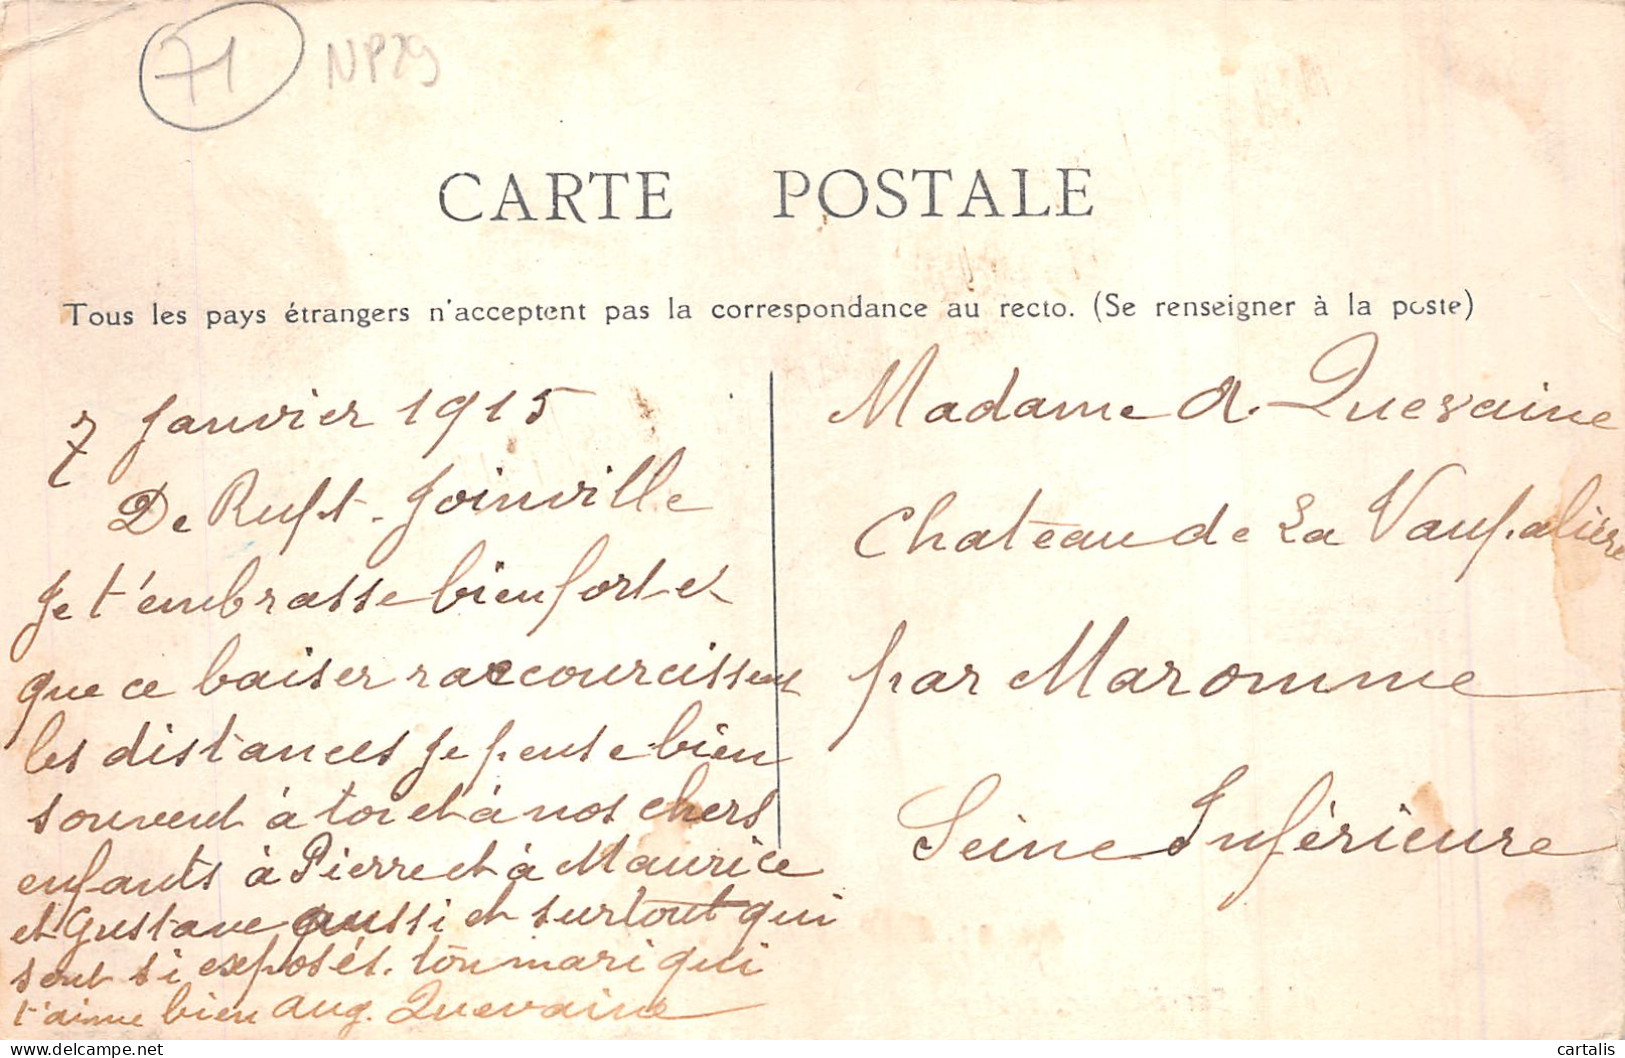 71 NP29
CARTE POSTALE
Tous les pays étrangers n'acceptent pas la correspondance au recto. (Se renseigner à la poste)
7 Janvier 1915
De Rupt-Joinville
Je t'embrasse bien fort et
que ce baiser raccourcissent
les distances Je pense bien
souvent à toi et à nos chers
enfants à Pierre et à Maurice
et Gustave aussi et surtout qui
sont si exposés. ton mari qui
t'aime bien Aug. Quevaine
Madame A. Quevaine
Chateau de La Vaupalière
par Maromme
Seine Inférieure
delcampe.net the_seller_33
cartalis